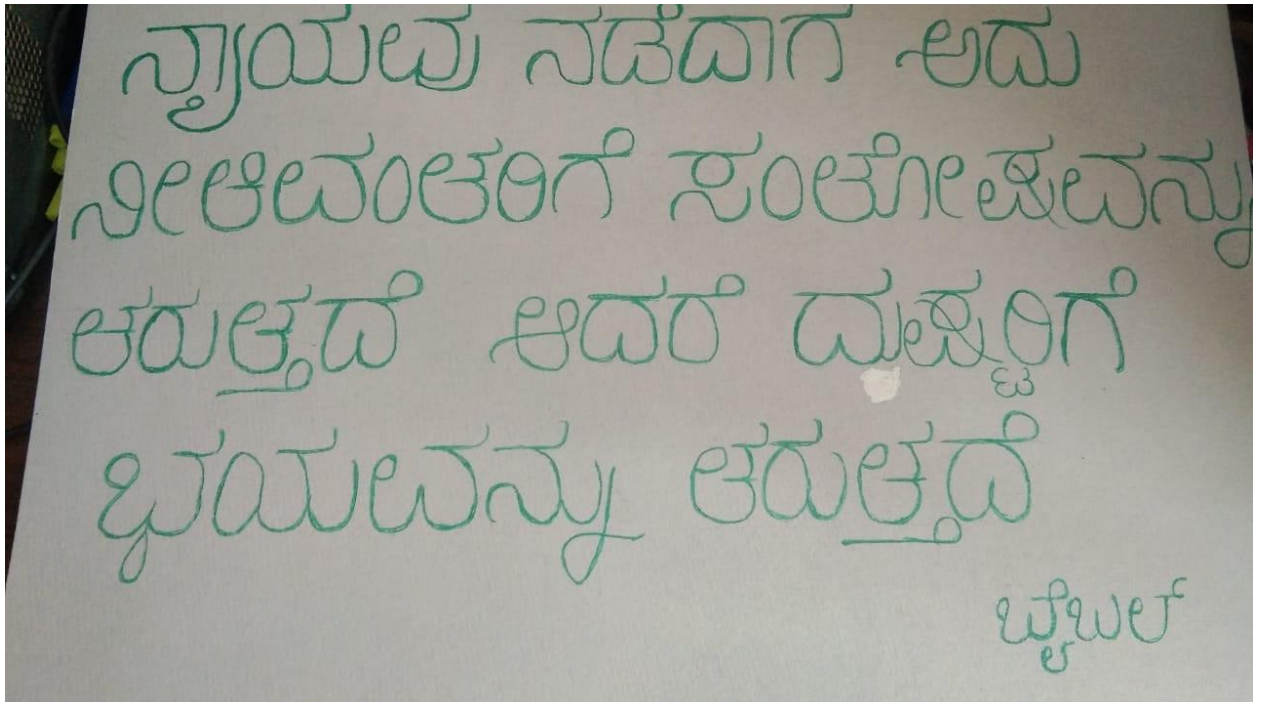 ನ್ಯಾಯವು ನಡೆದಾಗ ಅದು
ನೀತಿವಂತರಿಗೆ ಸಂತೋಷವನ್ನು
ತರುತ್ತದೆ ಆದರೆ ದುಷ್ಟರಿಗೆ
ಭಯವನ್ನು ತರುತ್ತದೆ
ಬೈಬಲ್